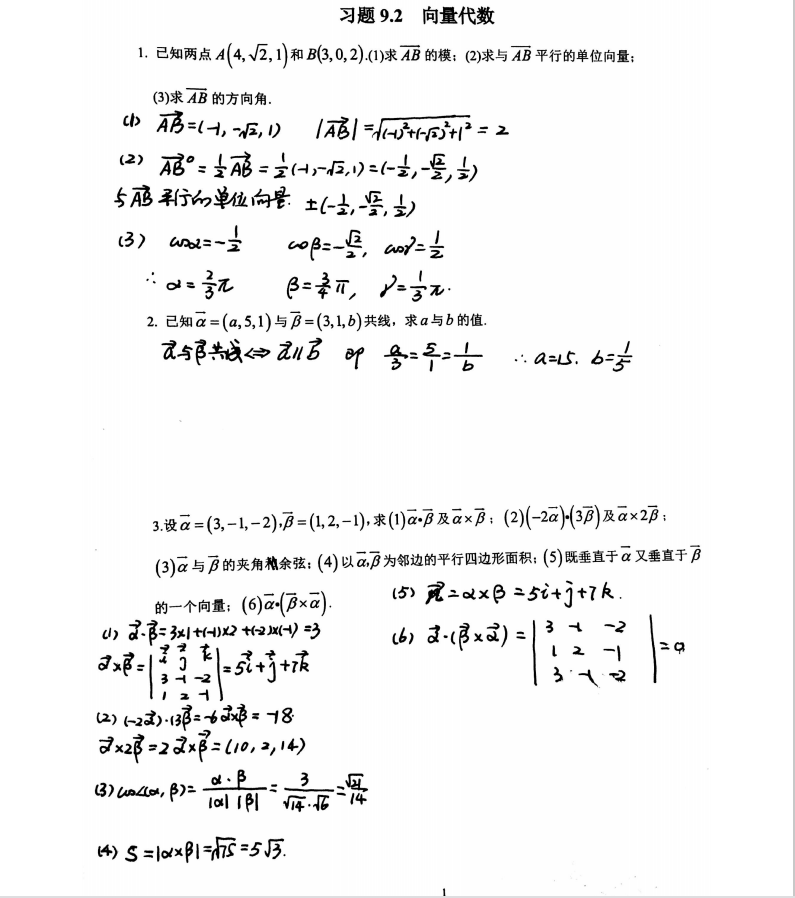 习题 9.2 向量代数
1. 已知两点 A(4, √2, 1) 和 B(3, 0, 2).(1)求 AB 的模；(2)求与 AB 平行的单位向量；
(3)求 AB 的方向角.
(1) AB=(-1, -√2, 1) |AB|=√((-1)²+(-√2)²+1²) = 2
(2) AB° = 1/2 AB = 1/2(-1,-√2,1) = (-1/2, -√2/2, 1/2)
与AB平行的单位向量: ±(-1/2, -√2/2, 1/2)
(3) cosα=-1/2 cosβ=-√2/2, cosγ=1/2
∴ α=2/3π β=3/4π, γ=1/3π.
2. 已知 α=(a,5,1) 与 β=(3,1,b) 共线，求 a 与 b 的值.
α与β共线⇔α∥β 即 a/3=5/1=1/b ∴ a=15. b=1/5
3.设 α=(3,-1,-2), β=(1,2,-1), 求(1) α•β 及 α×β；(2)(-2α)•(3β) 及 α×2β；
(3) α 与 β 的夹角的余弦；(4) 以 α,β 为邻边的平行四边形面积；(5) 既垂直于 α 又垂直于 β
的一个向量；(6) α•(β×α).
(1) α·β=3×1+(-1)×2+(-2)×(-1)=3
α×β=|i j k; 3 -1 -2; 1 2 -1|=5i+j+7k
(2) (-2α)·(3β)=-6α×β=-18
α×2β=2α×β=(10,2,14)
(3) cos∠(α,β)= α·β/|α||β| = 3/√14·√6 = √21/14
(4) S=|α×β|=√75=5√3.
(5) n=α×β=5i+j+7k.
(6) α·(β×α)=|3 -1 -2; 1 2 -1; 3 -1 -2|=0
1